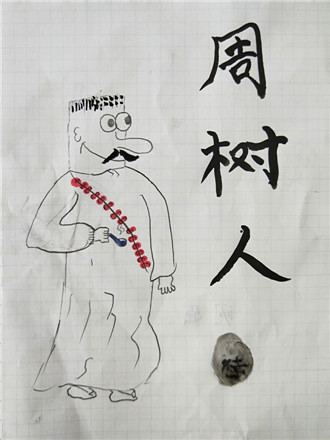 周树人